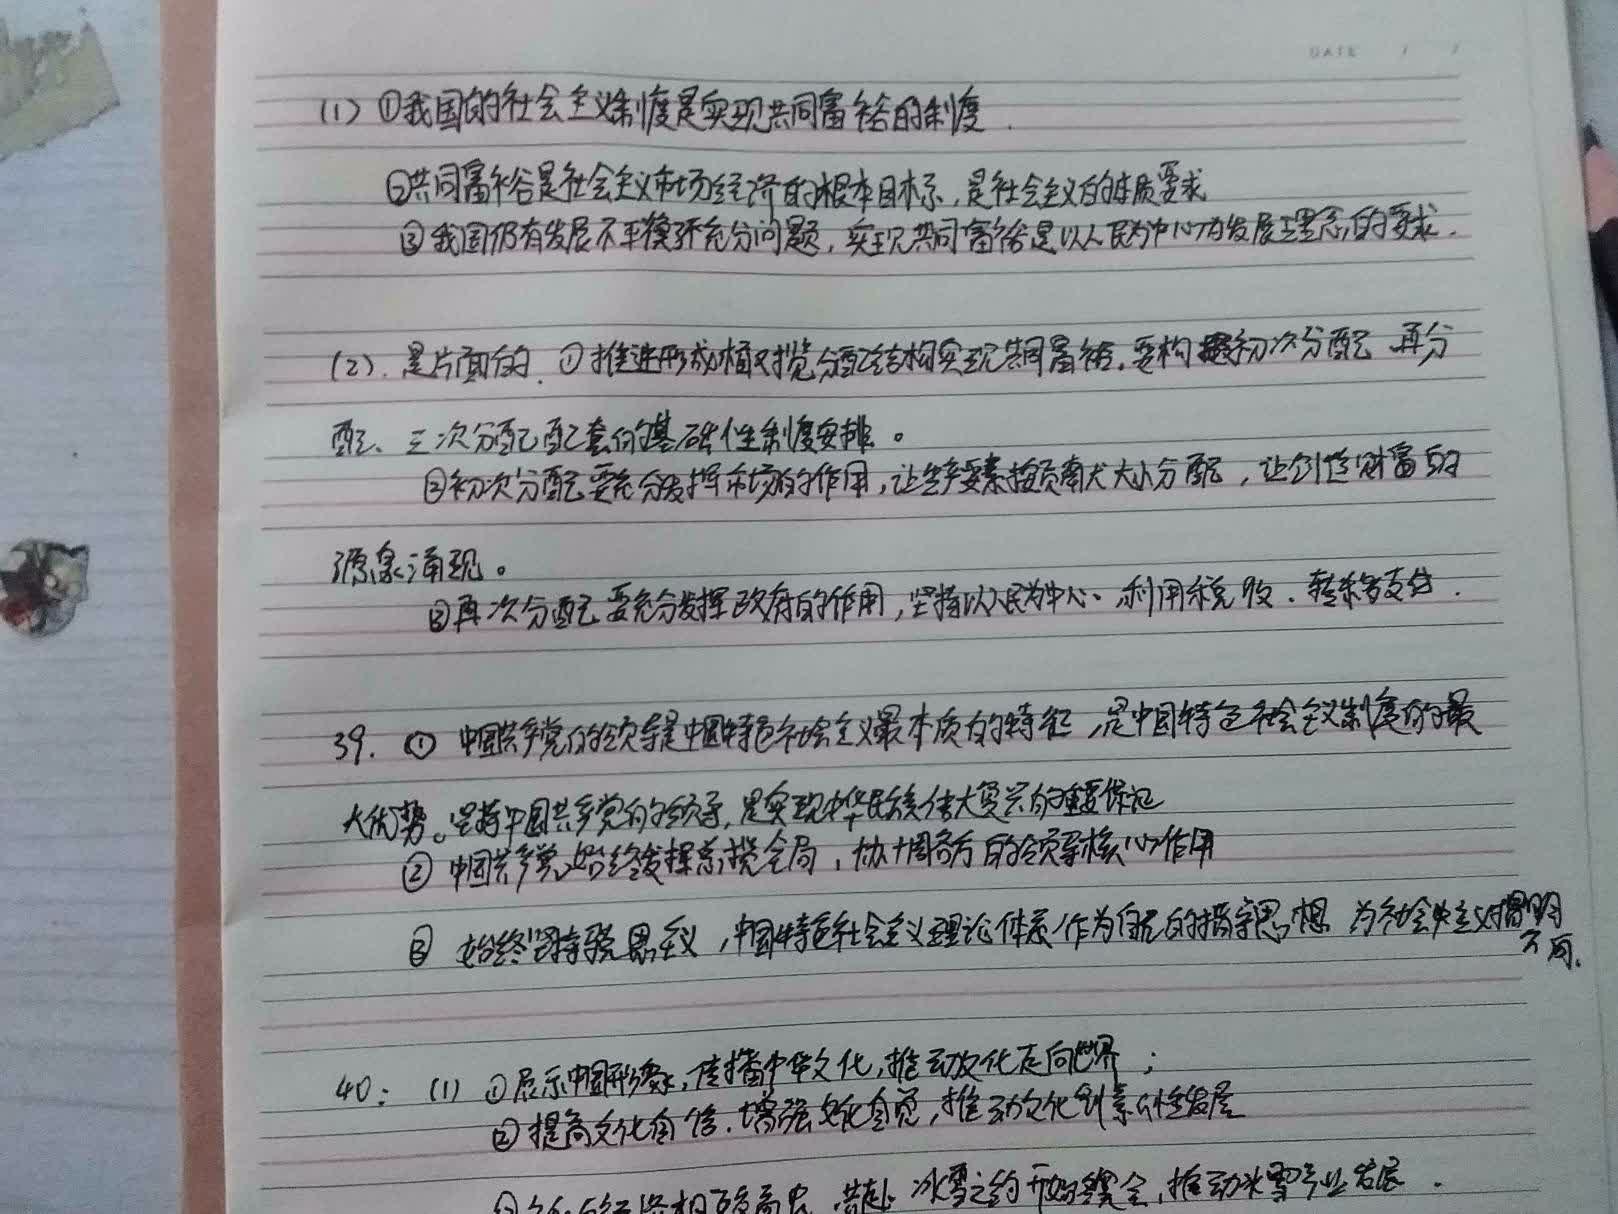 DATE / /
(1) ①我国的社会主义制度是实现共同富裕的制度.
②共同富裕是社会主义市场经济的根本目标，是社会主义的本质要求
③我国仍有发展不平衡不充分问题，实现共同富裕是以人民为中心为发展理念的要求.
(2). 是片面的. ①推进形成橄榄分配结构实现共同富裕，要构建初次分配 再分
配、三次分配配套的基础性制度安排。
②初次分配要充分发挥市场的作用，让生产要素按贡献大小分配，让创造财富的
源泉涌现。
③再次分配要充分发挥政府的作用，坚持以人民为中心、利用税收、转移支付.
39. ① 中国共产党的领导是中国特色社会主义最本质的特征，是中国特色社会主义制度的最
大优势。坚持中国共产党的领导，是实现中华民族伟大复兴的重要保证
② 中国共产党始终发挥总揽全局，协调各方的领导核心作用
③ 始终坚持 主义，中国特色社会主义理论体系作为自己的指导思想 为社会主义 明
40: (1) ①展示中国形象，传播中华文化，推动文化走向世界；
②提高文化自信.增强文化自觉，推动文化创 性发展
共赴冰雪之约 ，推动冰雪产业发展.